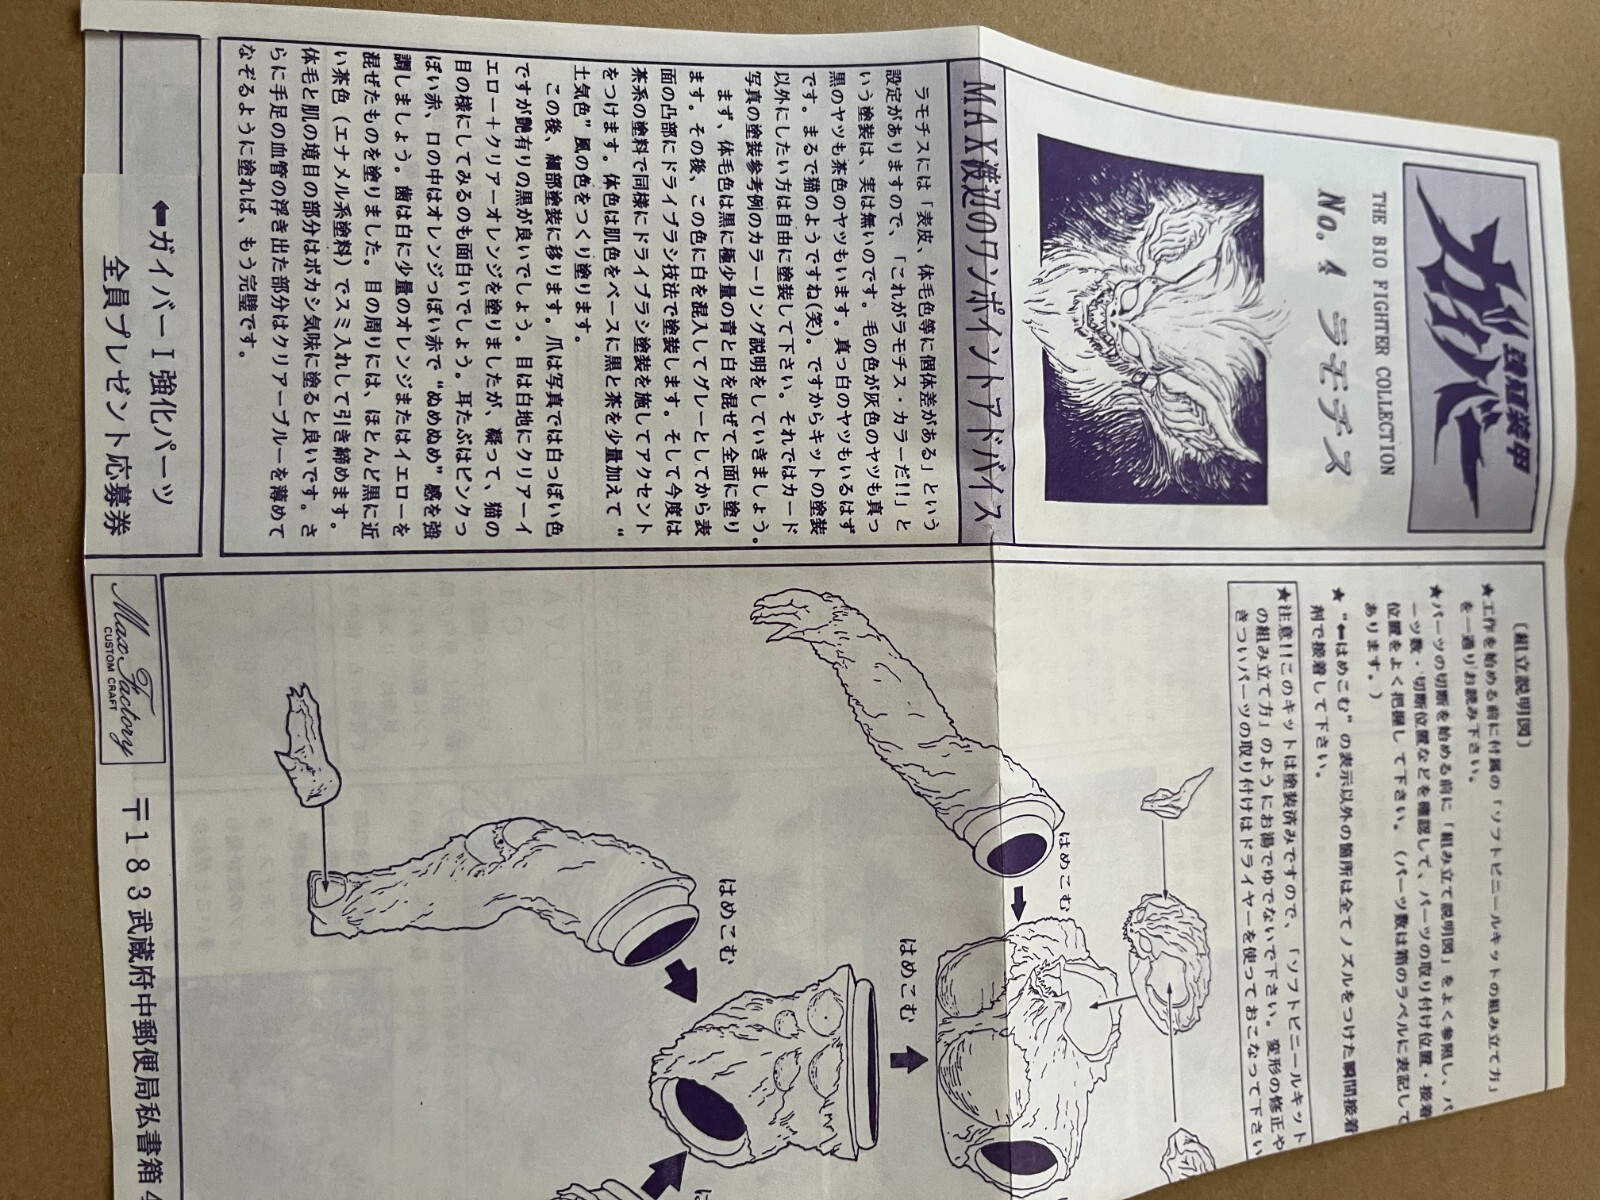 強殖装甲
ガイバー
THE BIO FIGHTER COLLECTION
No. 4 ラモチス
MAX渡辺のワンポイントアドバイス
ラモチスには「表皮、体毛色等に個体差がある」という
設定がありますので、「これがラモチス・カラーだ!!」と
いう塗装は、実は無いのです。毛の色が灰色のヤツも真っ
黒のヤツも茶色のヤツもいます。真っ白のヤツもいるはず
です。まるで猫のようですね(笑)。ですからキットの塗装
以外にしたい方は自由に塗装して下さい。それではカード
写真の塗装参考例のカラーリング説明をしていきましょう。
まず、体毛色は黒に極少量の青と白を混ぜて全面に塗り
ます。その後、この色に白を混入してグレーとしてから表
面の凸部にドライブラシ技法で塗装します。そして今度は
茶系の塗料で同様にドライブラシ塗装を施してアクセント
をつけます。体色は肌色をベースに黒と茶を少量加えて“
土気色”風の色をつくり塗ります。
この後、細部塗装に移ります。爪は写真では白っぽい色
ですが艶有りの黒が良いでしょう。目は白地にクリアーイ
エロー＋クリアーオレンジを塗りましたが、凝って、猫の
目の様にしてみるのも面白いでしょう。耳たぶはピンクっ
ぽい赤、口の中はオレンジっぽい赤で“ぬめぬめ”感を強
調しましょう。歯は白に少量のオレンジまたはイエローを
混ぜたものを塗りました。目の周りには、ほとんど黒に近
い茶色（エナメル系塗料）でスミ入れして引き締めます。
体毛と肌の境目の部分はボカシ気味に塗ると良いです。さ
らに手足の血管の浮き出た部分はクリアーブルーを薄めて
なぞるように塗れば、もう完璧です。
⬅ガイバーⅠ強化パーツ
全員プレゼント応募券
〔組立説明図〕
★工作を始める前に付属の「ソフトビニールキットの組み立て方」
を一通りお読み下さい。
★パーツの切断を始める前に「組み立て説明図」をよく参照し、パ
ーツ数・切断位置などを確認して、パーツの取り付け位置・接着
位置をよく把握して下さい。（パーツ数は箱のラベルに表記して
あります。）
★“⬅はめこむ”の表示以外の箇所は全てノズルをつけた瞬間接着
剤で接着して下さい。
★注意!!このキットは塗装済みですので、「ソフトビニールキット
の組み立て方」のようにお湯でゆでないで下さい。変形の修正や
きついパーツの取り付けはドライヤーを使っておこなって下さい
はめこむ
はめこむ
はめこむ
は
Max Factory
CUSTOM CRAFT
〒183 武蔵府中郵便局私書箱4